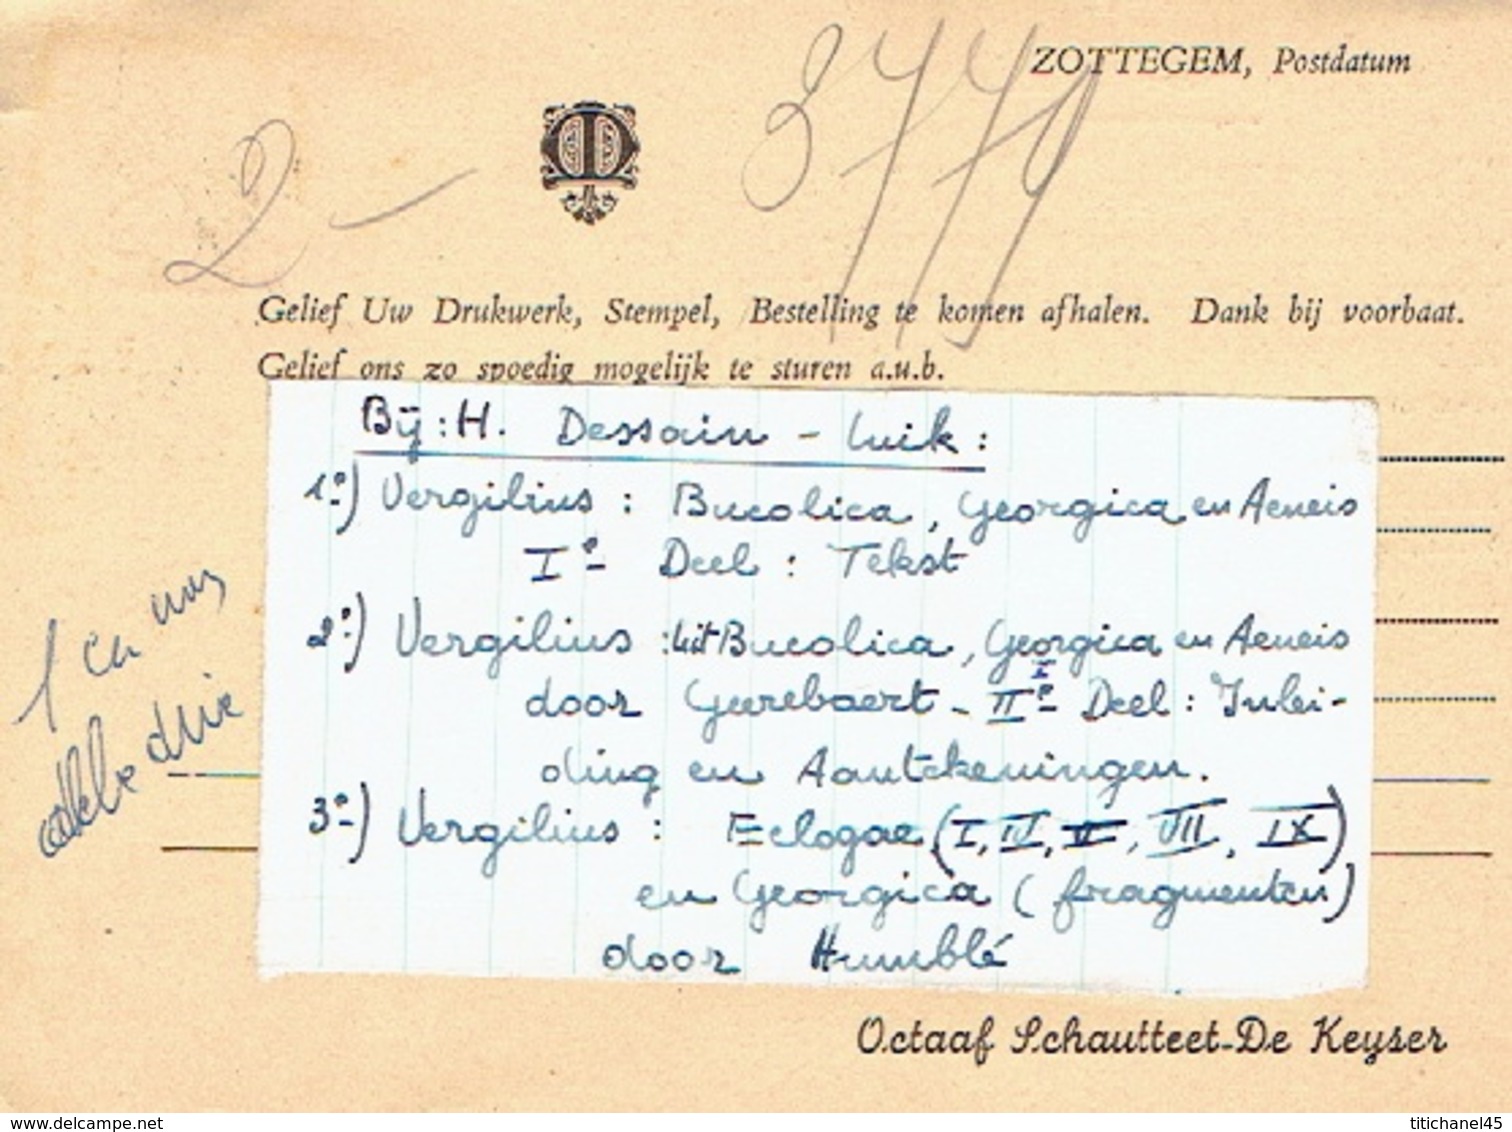 ZOTTEGEM, Postdatum
2 -
Gelief Uw Drukwerk, Stempel, Bestelling te komen afhalen. Dank bij voorbaat.
Gelief ons zo spoedig mogelijk te sturen a.u.b.
Bij : H. Dessain - Luik :
1°) Vergilius : Bucolica, Georgica en Aeneis
I° Deel : Tekst
2°) Vergilius : uit Bucolica, Georgica en Aeneis I
door Geerebaert - II° Deel : Inlei-
ding en Aantekeningen.
3°) Vergilius : Eclogae (I, IV, V, VII, IX)
en Georgica (fragmenten)
door Humblé
Octaaf Schautteet-De Keyser
delcampe.net
titichanel45